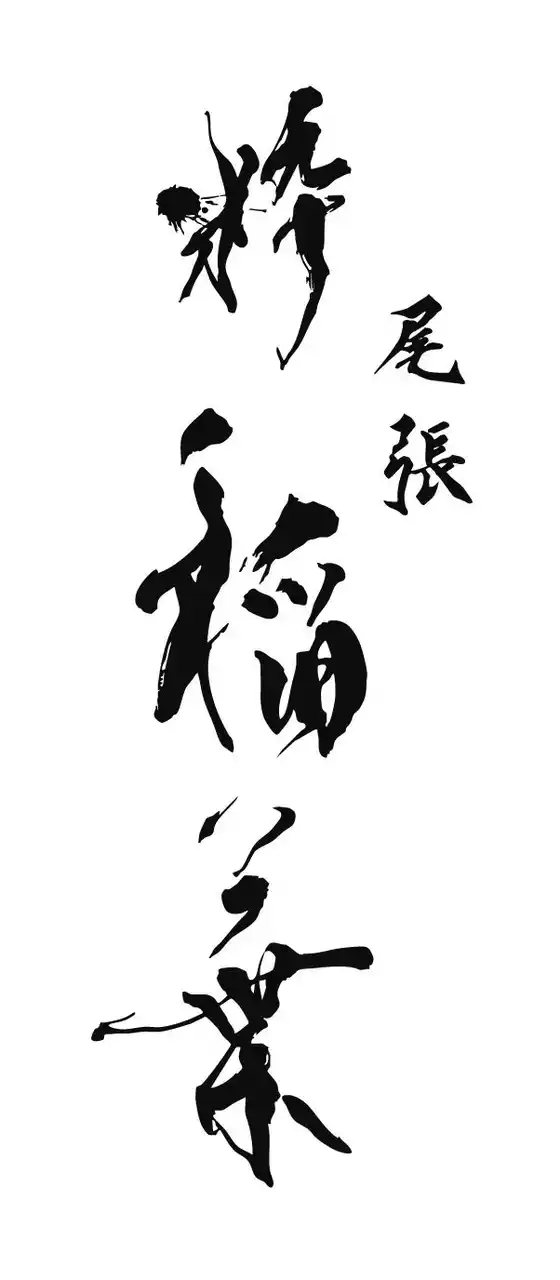 尾張
粋 稲葉